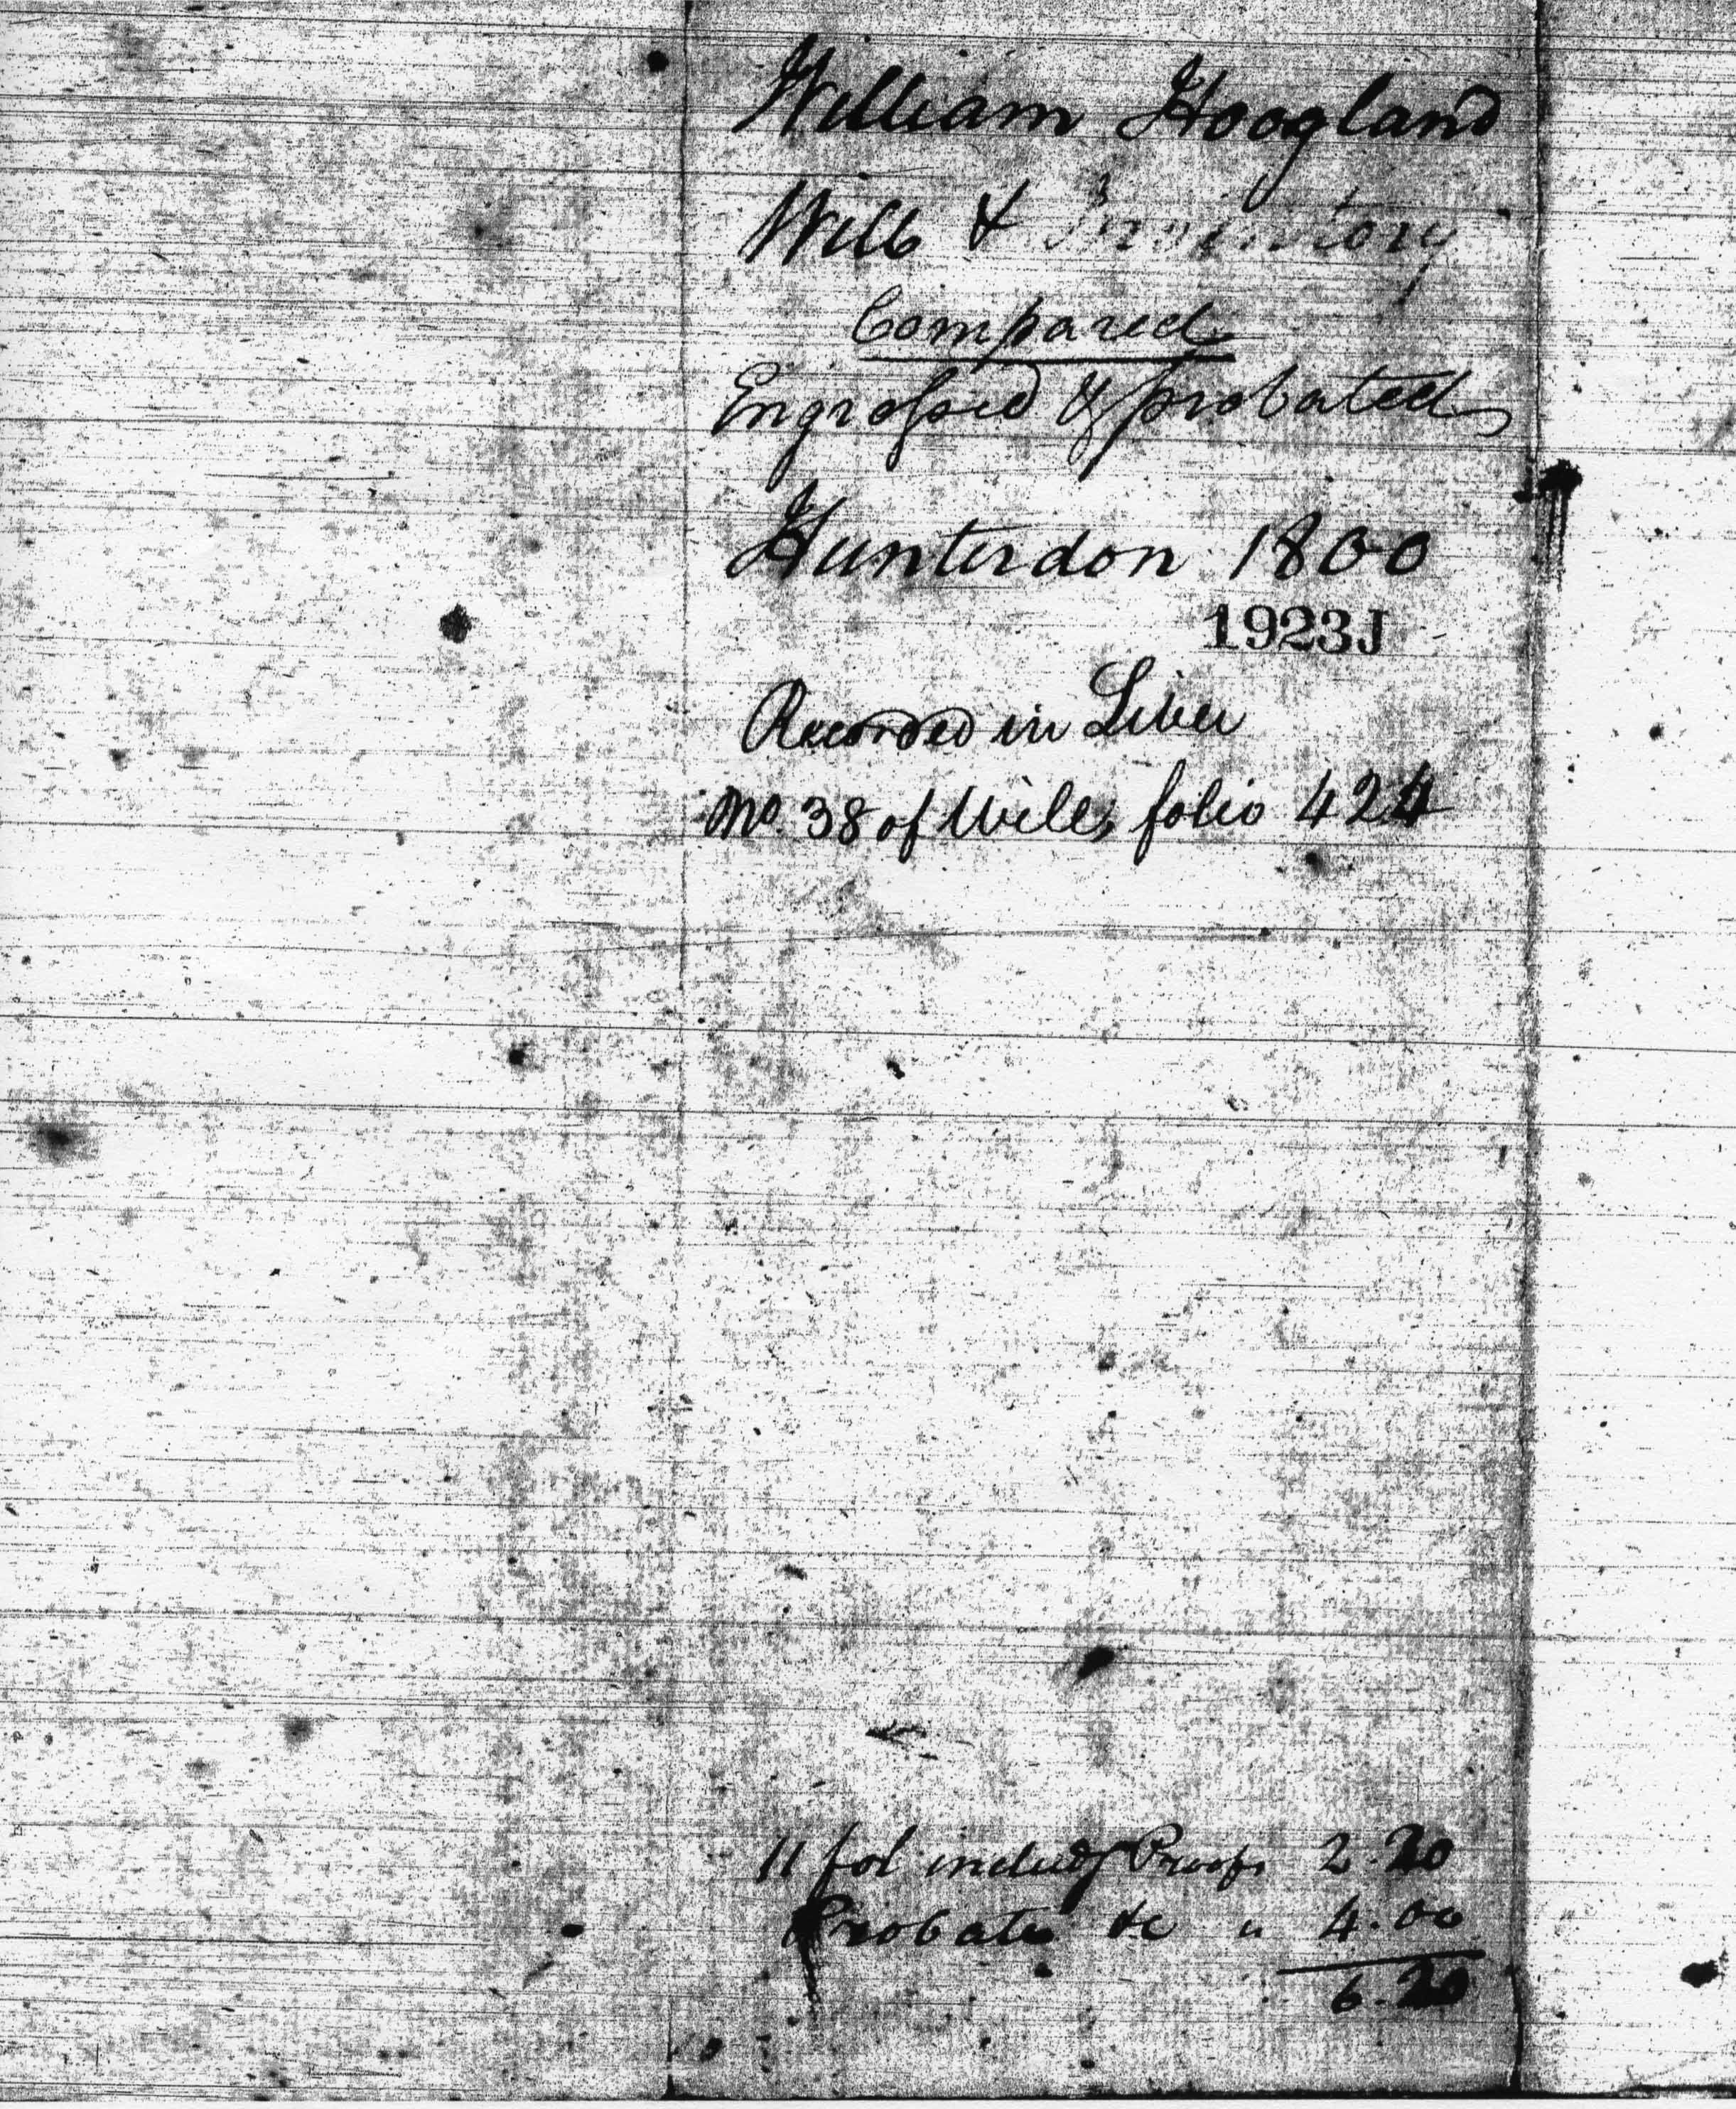 William Hoogland
Will & Inventory
Compared
Engrossed & probated
Hunterdon 1800
1923J
Recorded in Liber
No. 38 of Wills, folio 424
11 fol includg Proofs 2.20
Probate &c " 4.00
6.20